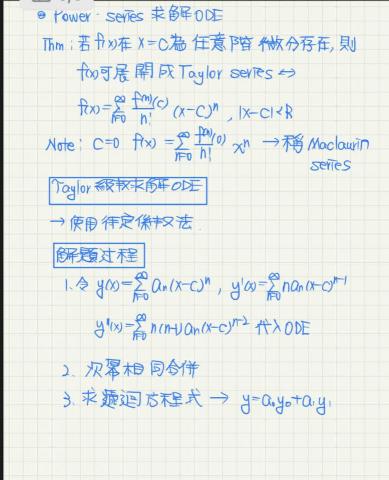 Power series 求解ODE
Thm:若f(x)在 x=c為 任意階 微分存在,則
f(x)可展開成Taylor series ↔
f(x)=∑_{n=0}^{∞} f^{(n)}(c)/n! (x-c)^n , |x-c|<R
Note: c=0 f(x)=∑_{n=0}^{∞} f^{(n)}(0)/n! x^n → 稱 Maclaurin
series
Taylor 級數求解ODE
→ 使用待定係數法
解題过程
1.令 y(x)=∑_{n=0}^{∞} a_n(x-c)^n , y'(x)=∑_{n=0}^{∞} n a_n(x-c)^{n-1}
y''(x)=∑_{n=0}^{∞} n(n-1)a_n(x-c)^{n-2} 代入ODE
2. 次冪相同合併
3. 求遞迴方程式 → y=a_0y_0+a_1y_1